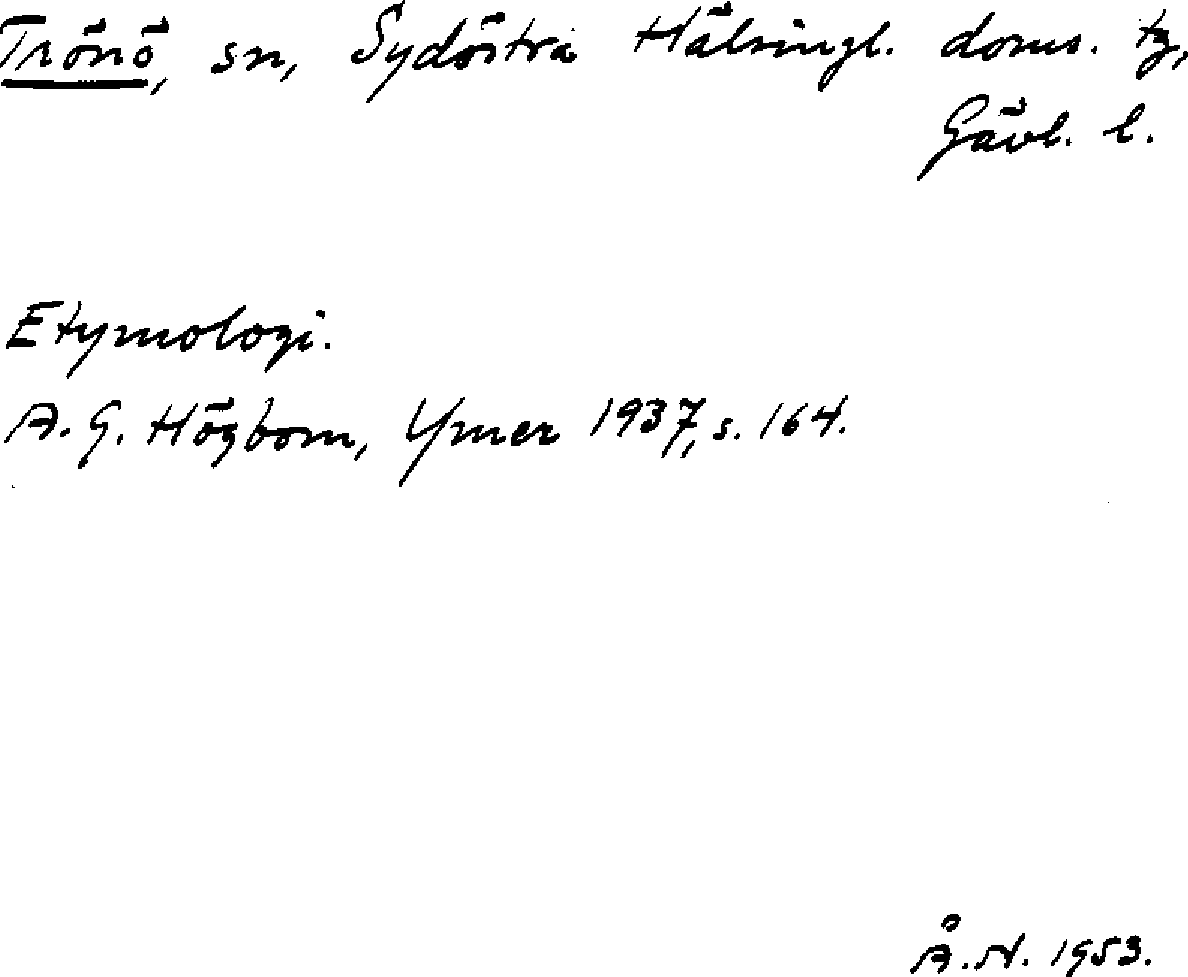 Trönö, sn, Sydöstra Hälsingl. doms. tg,
Gävl. l.
Etymologi.
A. G. Högbom, Ymer 1937, s. 164.
Å. N. 1953.